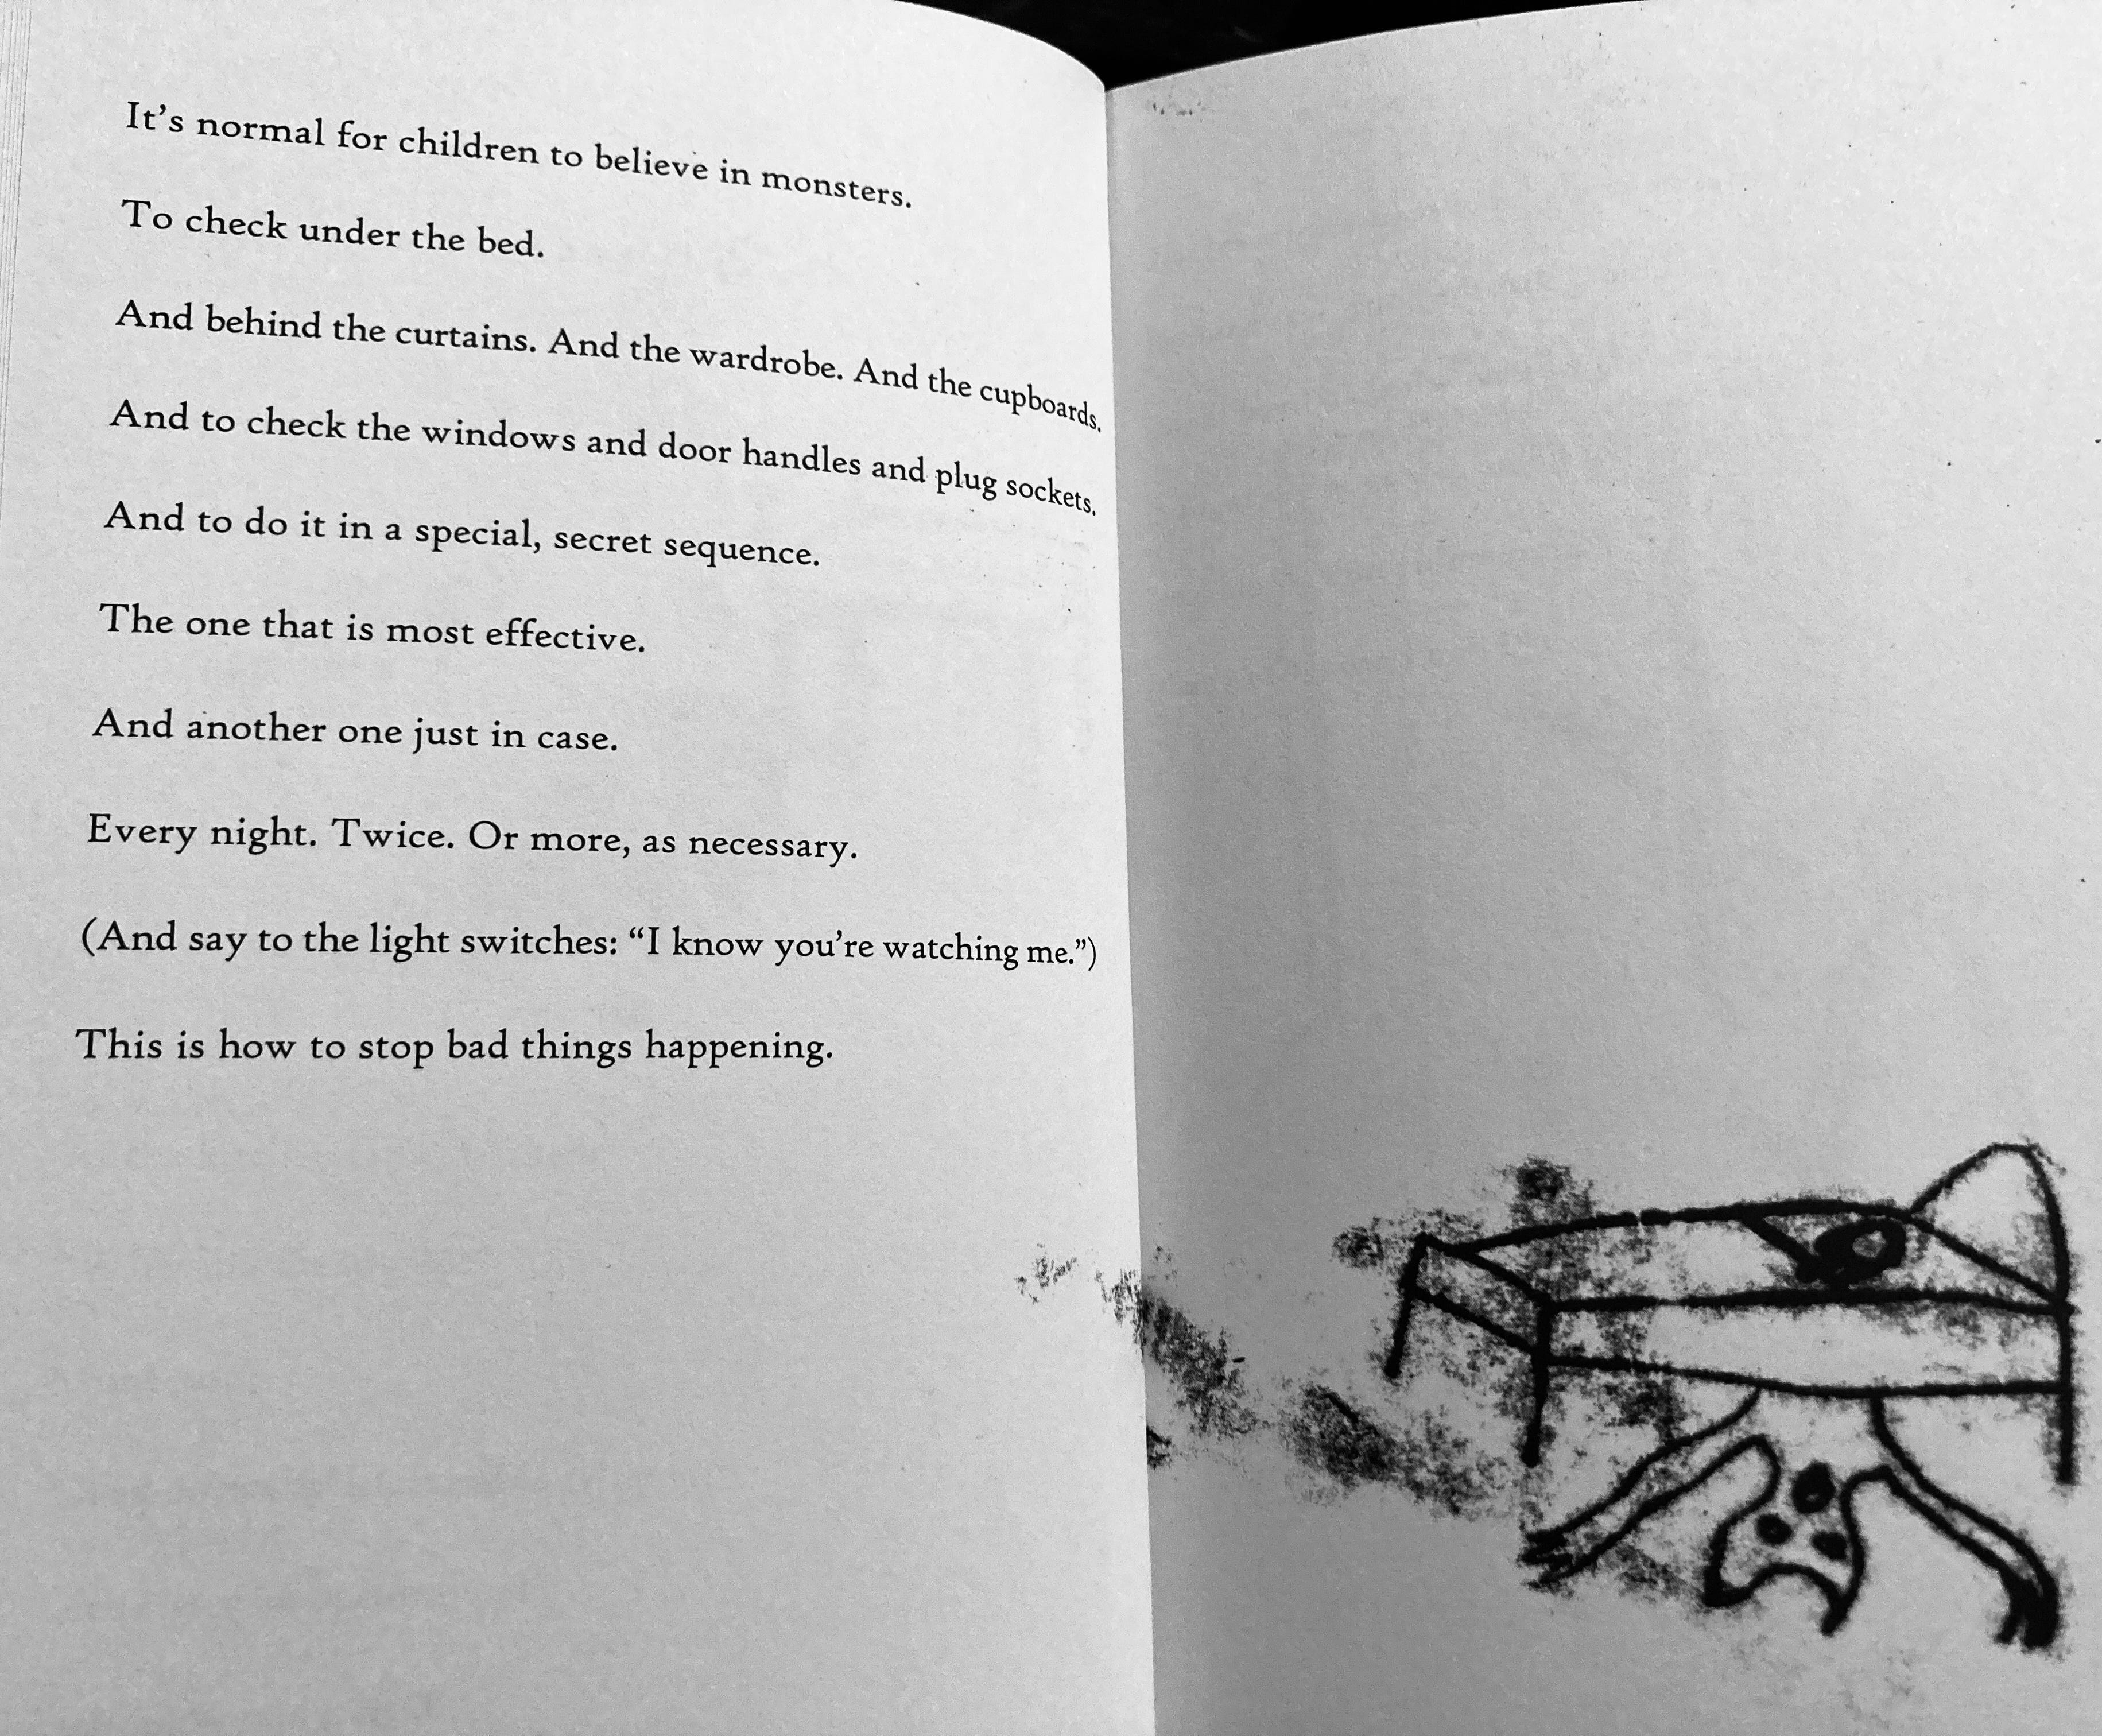 It's normal for children to believe in monsters.
To check under the bed.
And behind the curtains. And the wardrobe. And the cupboards.
And to check the windows and door handles and plug sockets.
And to do it in a special, secret sequence.
The one that is most effective.
And another one just in case.
Every night. Twice. Or more, as necessary.
(And say to the light switches: “I know you're watching me.”)
This is how to stop bad things happening.